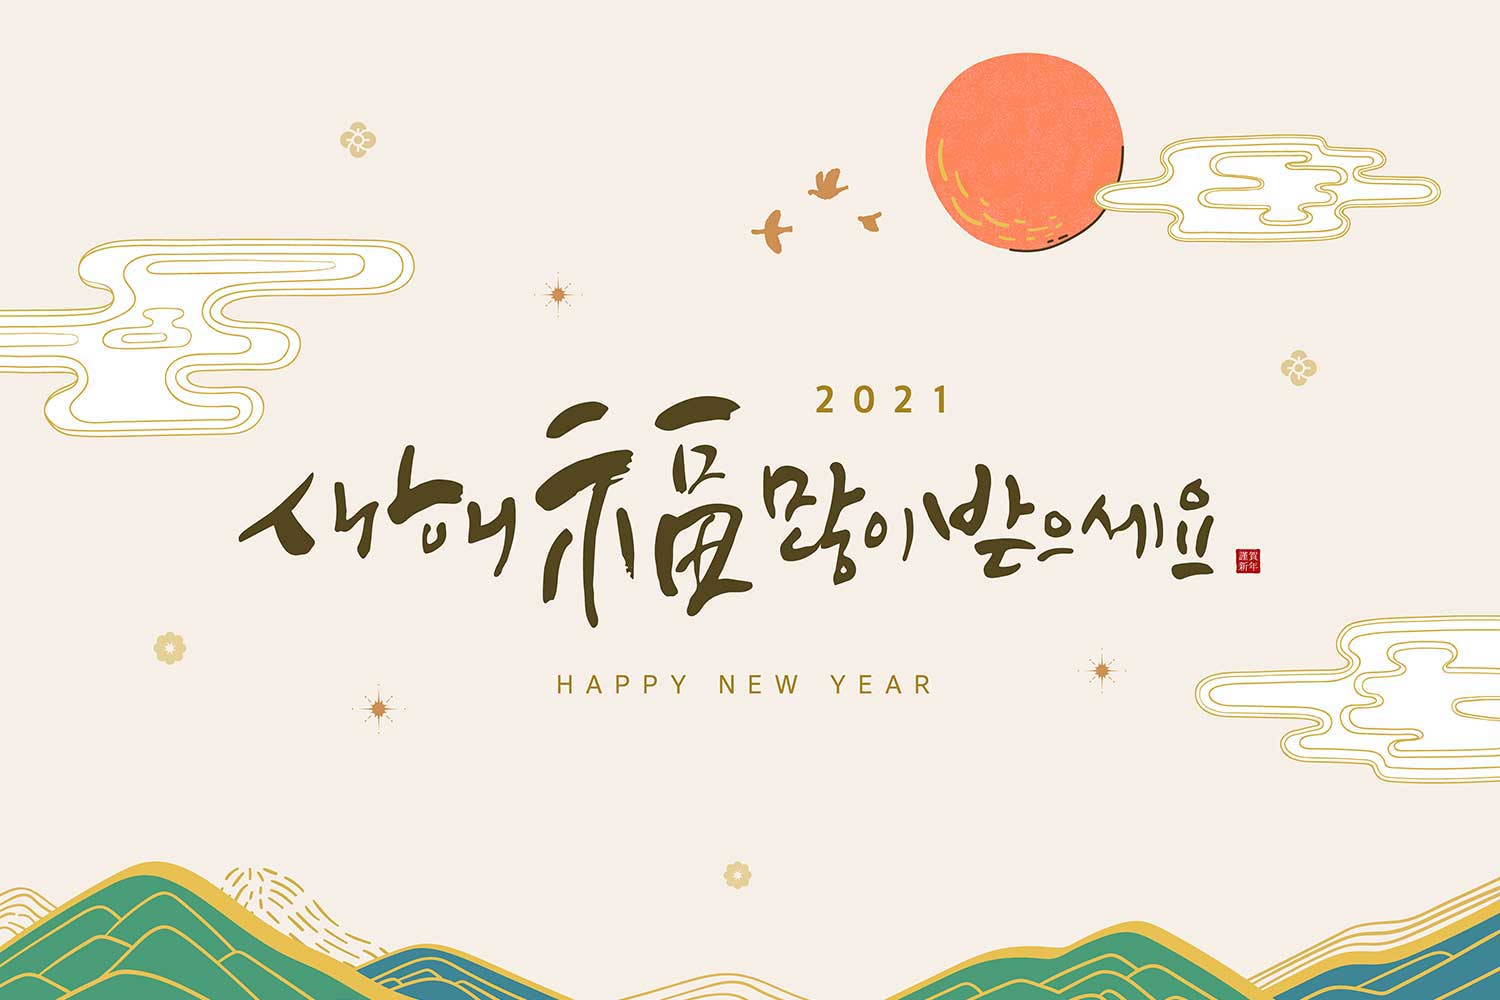 2021
새해 福 많이 받으세요
謹賀
新年
HAPPY NEW YEAR